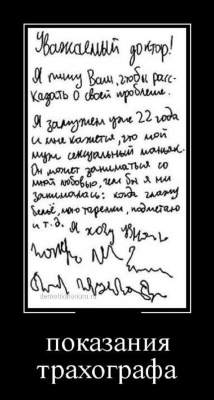 Уважаемый доктор!
Я пишу Вам, чтобы расс-
казать о своей проблеме.
Я замужем уже 22 года
и мне кажется, что мой
муж сексуальный маньяк.
Он может заниматься со
мной любовью, чем бы я ни
занималась: когда глажу
бельё, мою тарелки, подметаю
и т.д. Я хочу узнать
demotivators.ru
показания
трахографа